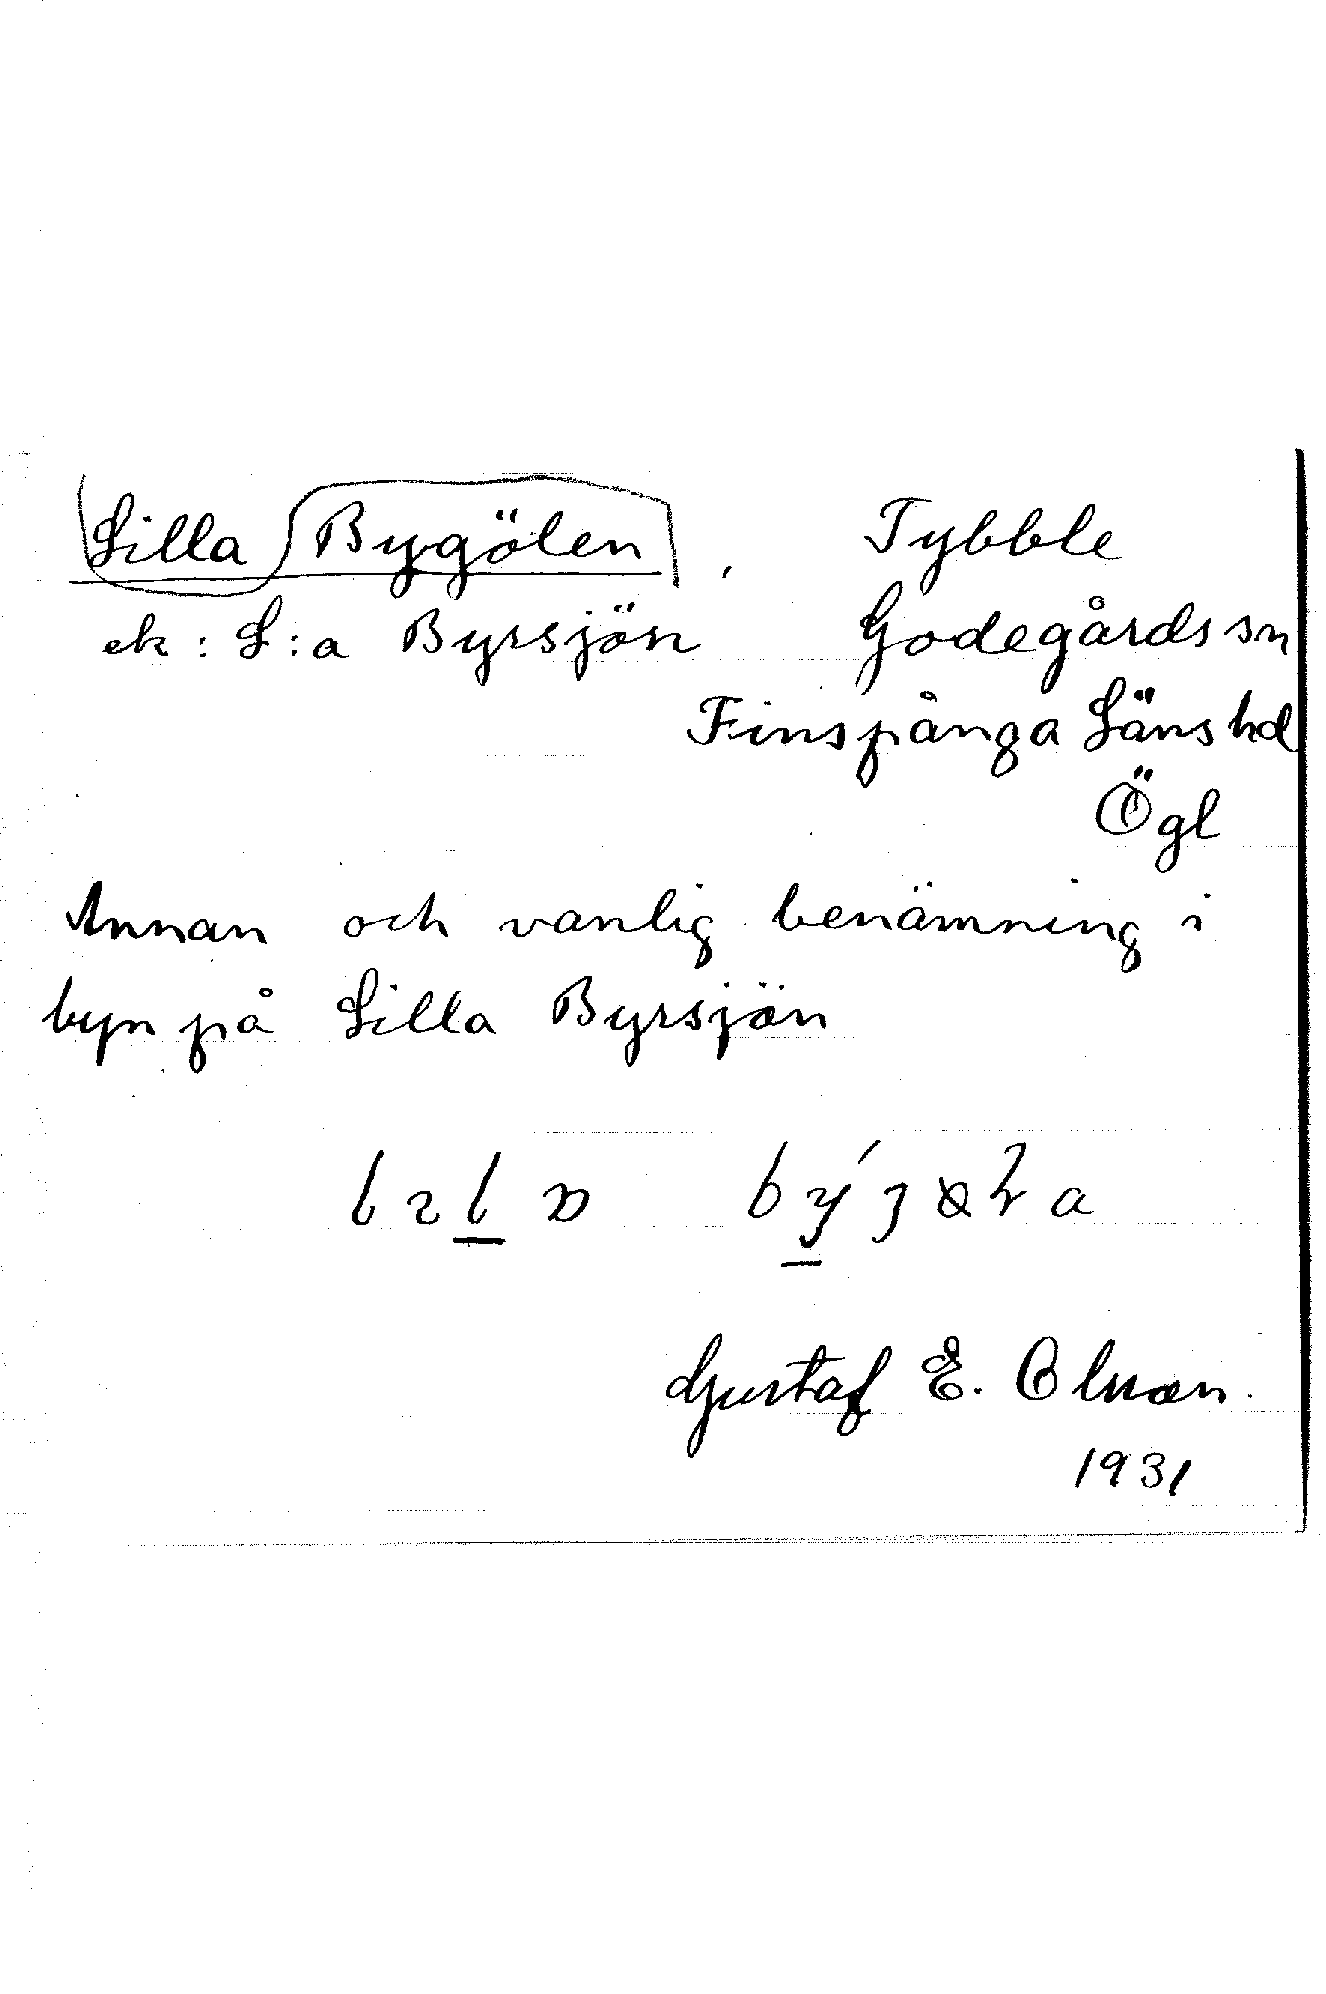 Lilla Bygölen, Tybble
ek: L:a Byrsjön Godegårds sn
Finspånga Läns hd
Ögl
Annan och vanlig benämning i
byn på Lilla Byrsjön
Gustaf E. Olsson.
1931